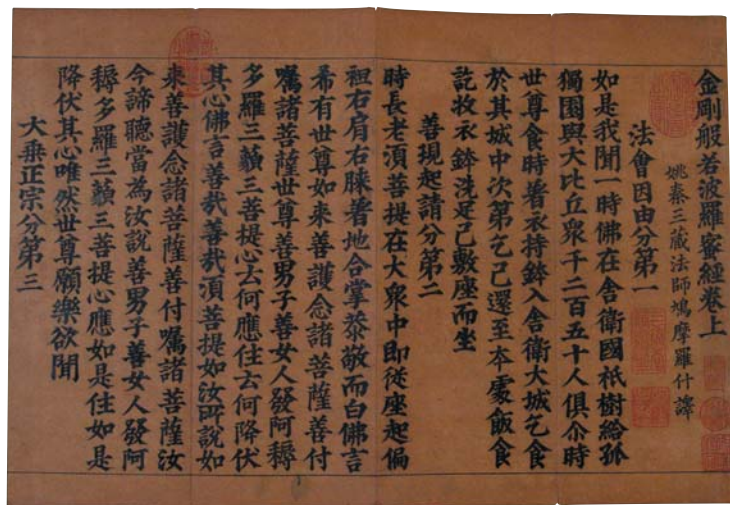 金剛般若波羅蜜經卷上
姚秦三藏法師鳩摩羅什譯
法會因由分第一
如是我聞一時佛在舍衛國祇樹給孤
獨園與大比丘衆千二百五十人俱尒時
世尊食時著衣持鉢入舍衛大城乞食
於其城中次第乞已還至本處飯食
訖收衣鉢洗足已敷座而坐
善現起請分第二
時長老湏菩提在大衆中即從座起偏
袒右肩右膝著地合掌恭敬而白佛言
希有世尊如来善護念諸菩薩善付
囑諸菩薩世尊善男子善女人發阿耨
多羅三藐三菩提心云何應住云何降伏
其心佛言善哉善哉湏菩提如汝所說如
来善護念諸菩薩善付囑諸菩薩汝
今諦聽當為汝說善男子善女人發阿
耨多羅三藐三菩提心應如是住如是
降伏其心唯然世尊願樂欲聞
大乗正宗分第三